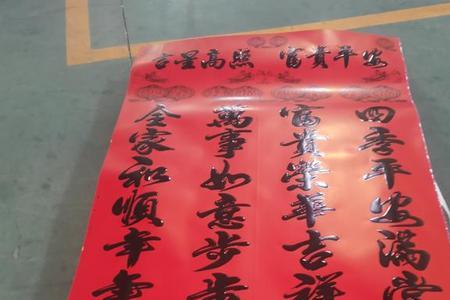 吉星高照 富貴平安
四季平安滿堂
富貴榮華吉祥
萬事如意步步
全家和順幸